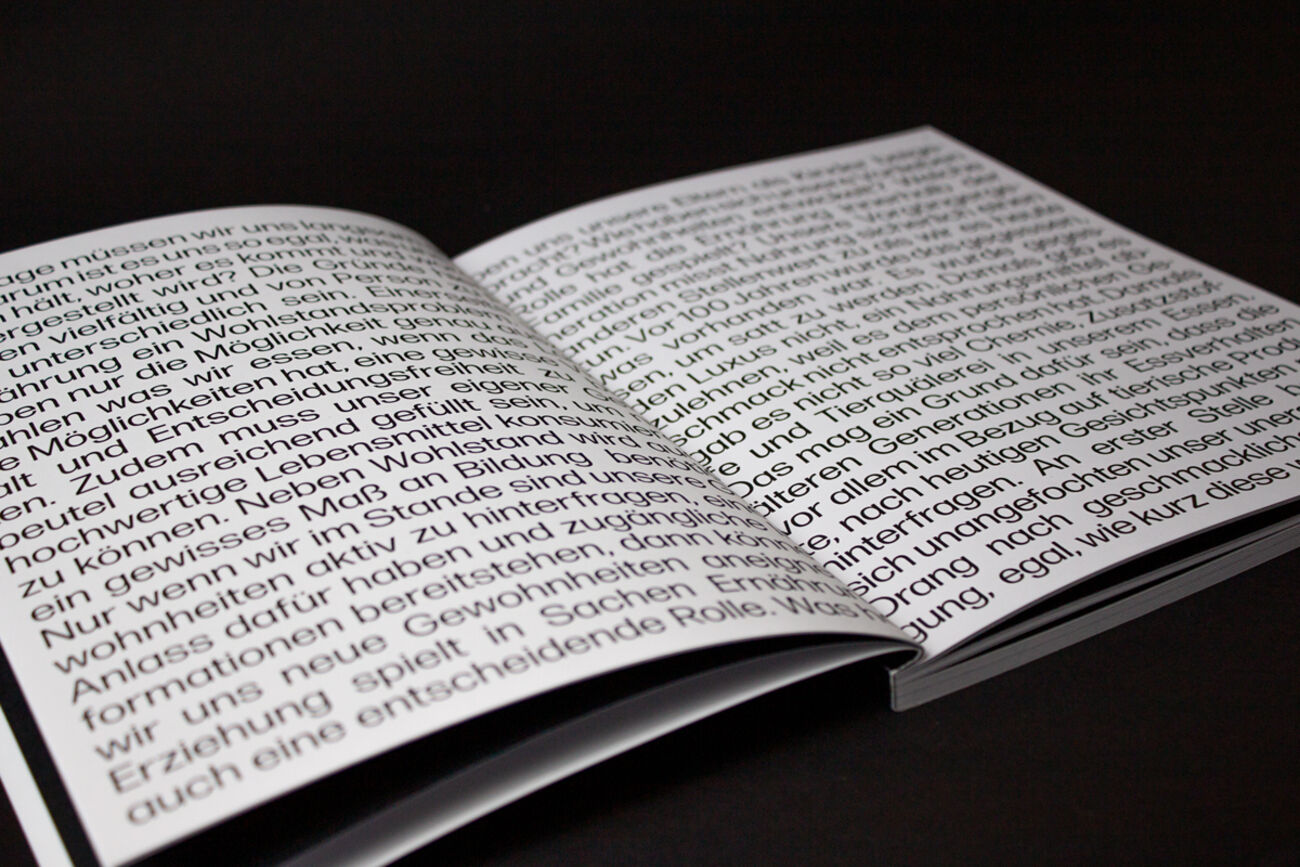 age müssen wir uns
arum ist es uns so egal, was
hält, woher es kommt und
ergestellt wird? Die Gründe
en vielfältig und von Person
unterschiedlich sein. Einer
ährung ein Wohlstandsproblem
ben nur die Möglichkeit genau
ahlen was wir essen, wenn
e Möglichkeiten hat, eine gewisse
alt und Entscheidungsfreiheit zu
en. Zudem muss unser eigener
beutel ausreichend gefüllt sein, um
hochwertige Lebensmittel konsumie
zu können. Neben Wohlstand wird
ein gewisses Maß an Bildung benö
Nur wenn wir im Stande sind unsere
wohnheiten aktiv zu hinterfragen, ein
Anlass dafür haben und zugängliche
formationen bereitstehen, dann könn
wir uns neue Gewohnheiten aneign
Erziehung spielt in Sachen Ernähr
auch eine entscheidende Rolle. Was
en uns unsere Eltern als Kinder
acht? Wie haben sich unsere
und Gewohnheiten entwickelt? Welche
olle hat die Ernährung innerhalb der
amilie gespielt? Unsere Vorgänger
eneration misst Nahrung schon einen
anderen Stellenwert zu, als wir es heute
un. Vor 100 Jahren wurde das gegessen,
was vorhanden war. Es wurde
en, um satt zu werden. Damals gab es
en Luxus nicht, ein Nahrungsmittel ab-
zulehnen, weil es dem persönlichen Ge-
schmack nicht entsprochen hat. Damals
gab es nicht so viel Chemie, Zusatzstof-
e und Tierquälerei in unserem Essen.
Das mag ein Grund dafür sein, dass die
älteren Generationen ihr Essverhalten
vor allem im Bezug auf tierische Prod
te, nach heutigen Gesichtspunkten
hinterfragen. An erster Stelle
sich unangefochten unser uner
Drang nach geschmacklich
gung, egal, wie kurz diese